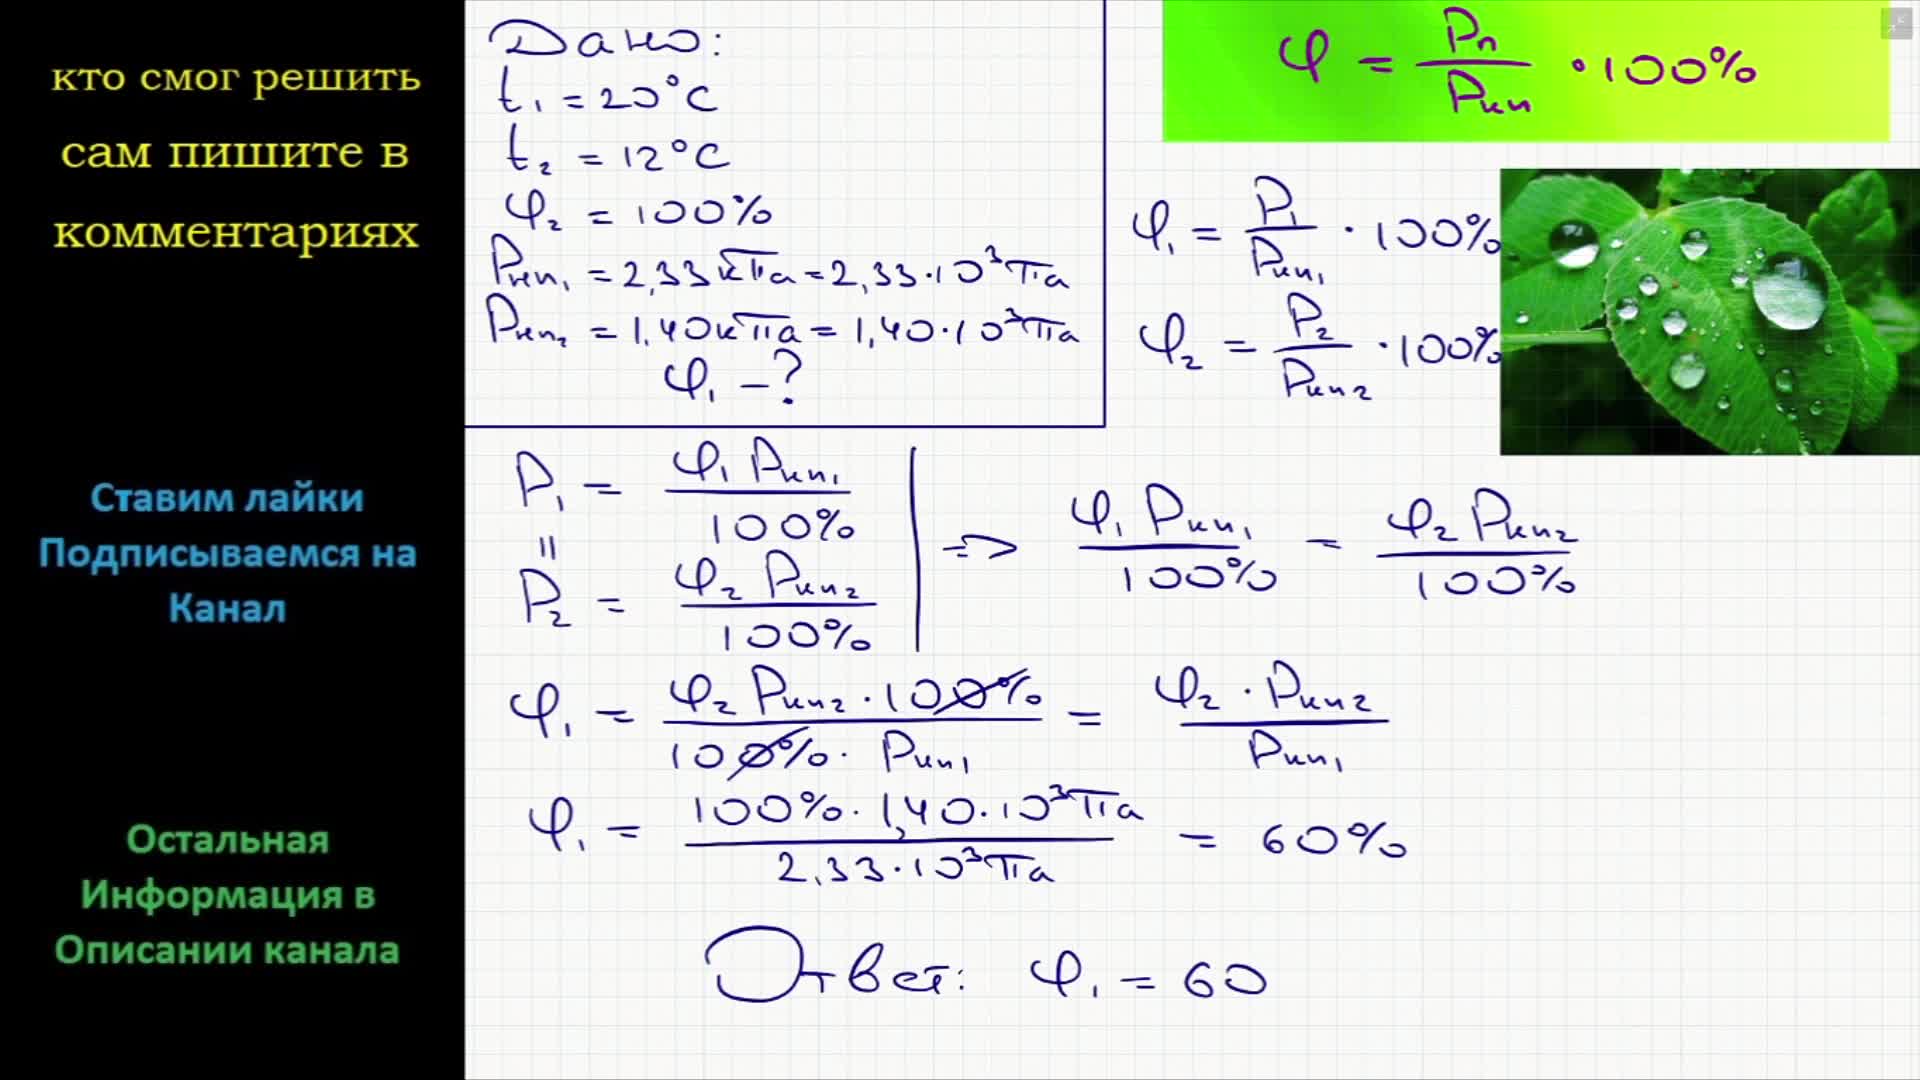 кто смог решить
сам пишите в
комментариях
Ставим лайки
Подписываемся на
Канал
Остальная
Информация в
Описании канала
Дано:
t₁ = 20°C
t₂ = 12°C
φ₂ = 100%
Pнп₁ = 2,33кПа = 2,33·10³Па
Pнп₂ = 1,40кПа = 1,40·10³Па
φ₁ – ?
φ = Pп / Pнп · 100%
φ₁ = P₁ / Pнп₁ · 100%
φ₂ = P₂ / Pнп₂ · 100%
P₁ = φ₁ Pнп₁ / 100%
=
P₂ = φ₂ Pнп₂ / 100%
=> φ₁ Pнп₁ / 100% = φ₂ Pнп₂ / 100%
φ₁ = φ₂ Pнп₂ · 100% / 100% · Pнп₁ = φ₂ · Pнп₂ / Pнп₁
φ₁ = 100% · 1,40·10³Па / 2,33·10³Па = 60%
Ответ: φ₁ = 60